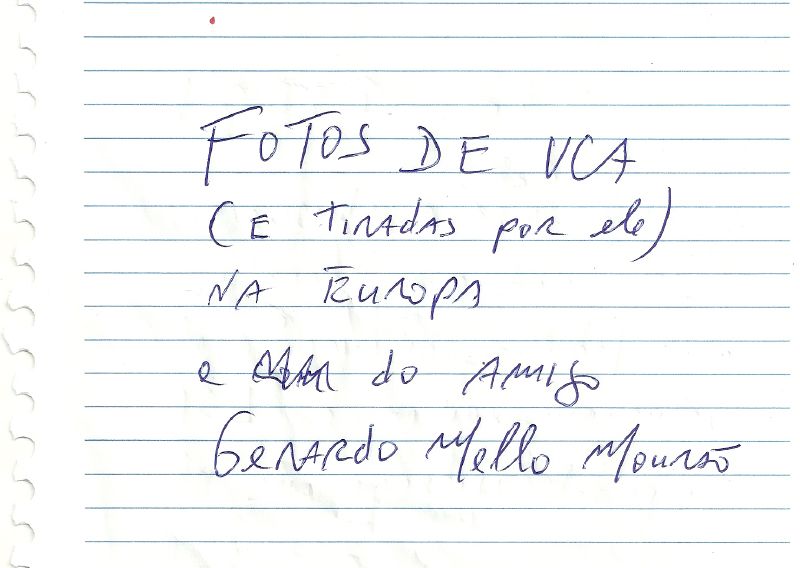 FOTOS DE VCA
(E TIRADAS POR ele)
NA EUROPA
e do AMIGO
GERARDO Mello MOURÃO